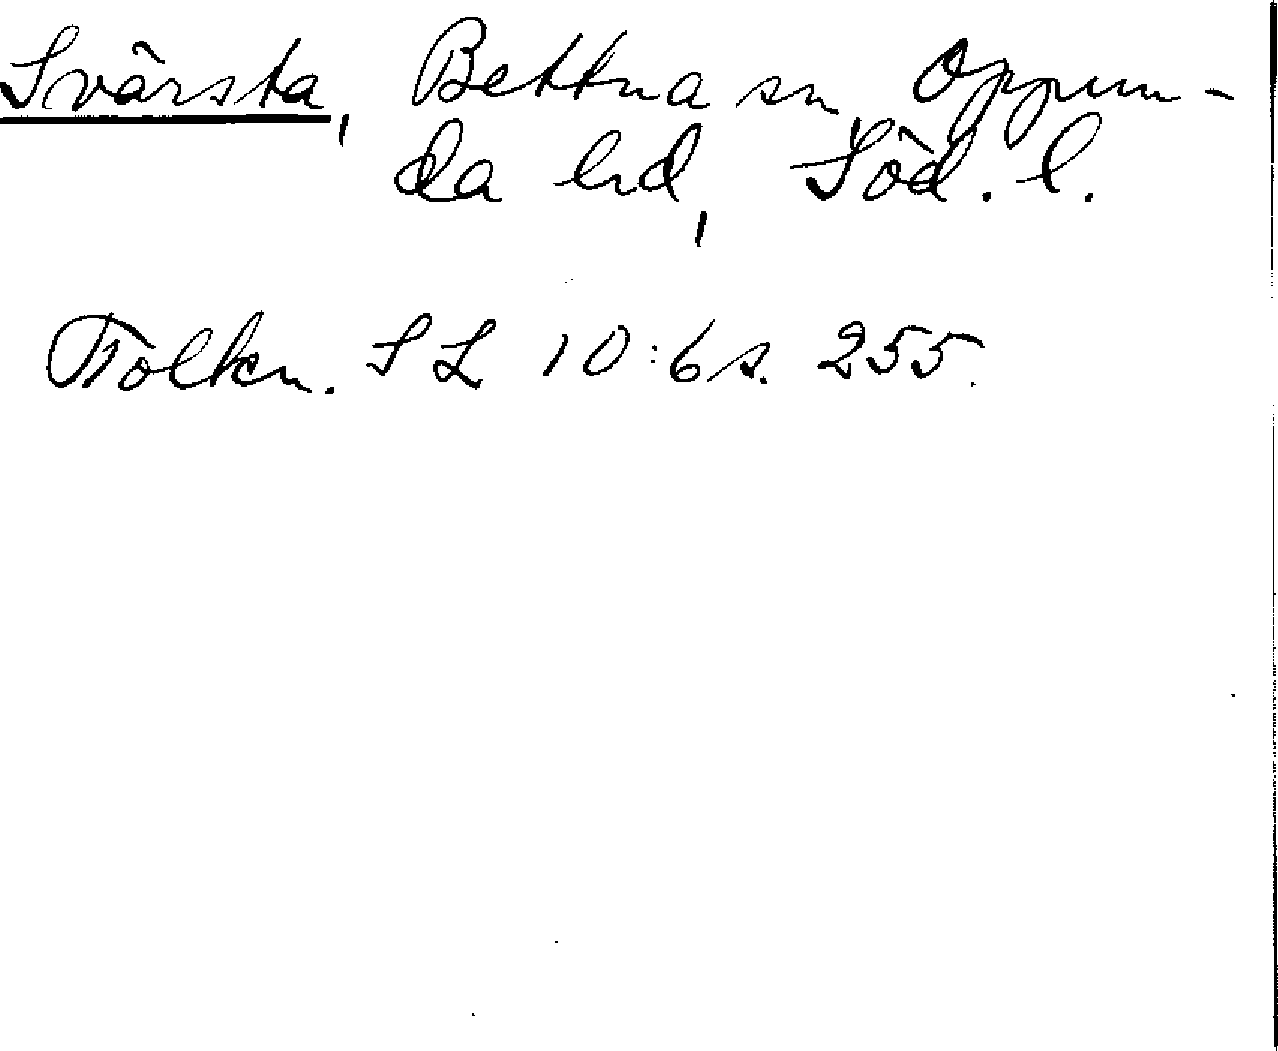 Svärsta, Bettna sn, Oppun-
da hd, Söd. l.
Tolkn. SL 10:6 s. 255.